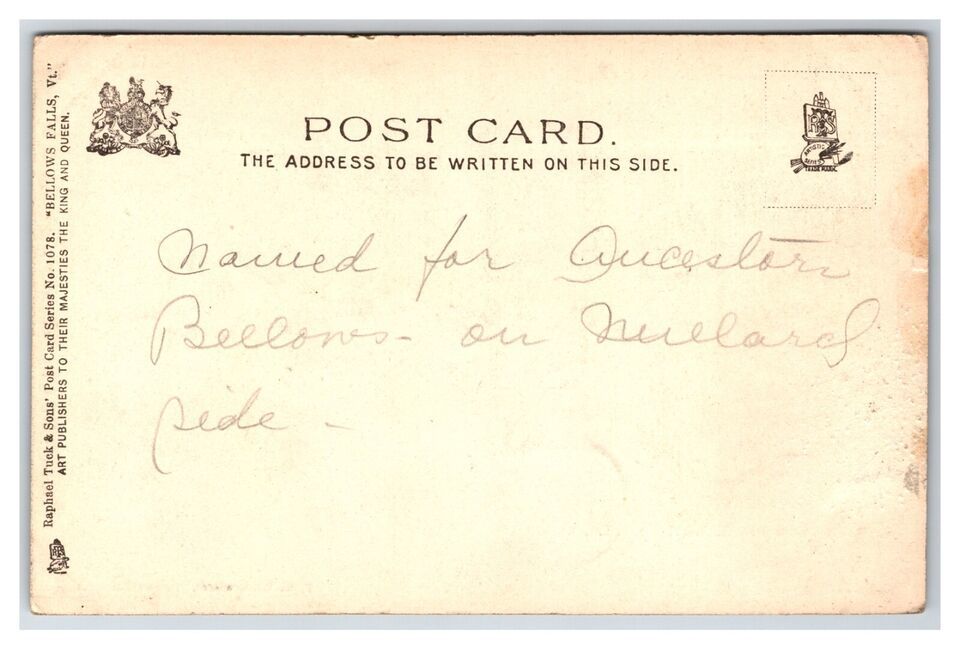 Raphael Tuck & Sons' Post Card Series No. 1078. "BELLOWS FALLS, Vt."
ART PUBLISHERS TO THEIR MAJESTIES THE KING AND QUEEN.
POST CARD.
THE ADDRESS TO BE WRITTEN ON THIS SIDE.
ARTISTIC
SERIES
TRADE MARK
Named for Ancestors
Bellows - on Millard
side -